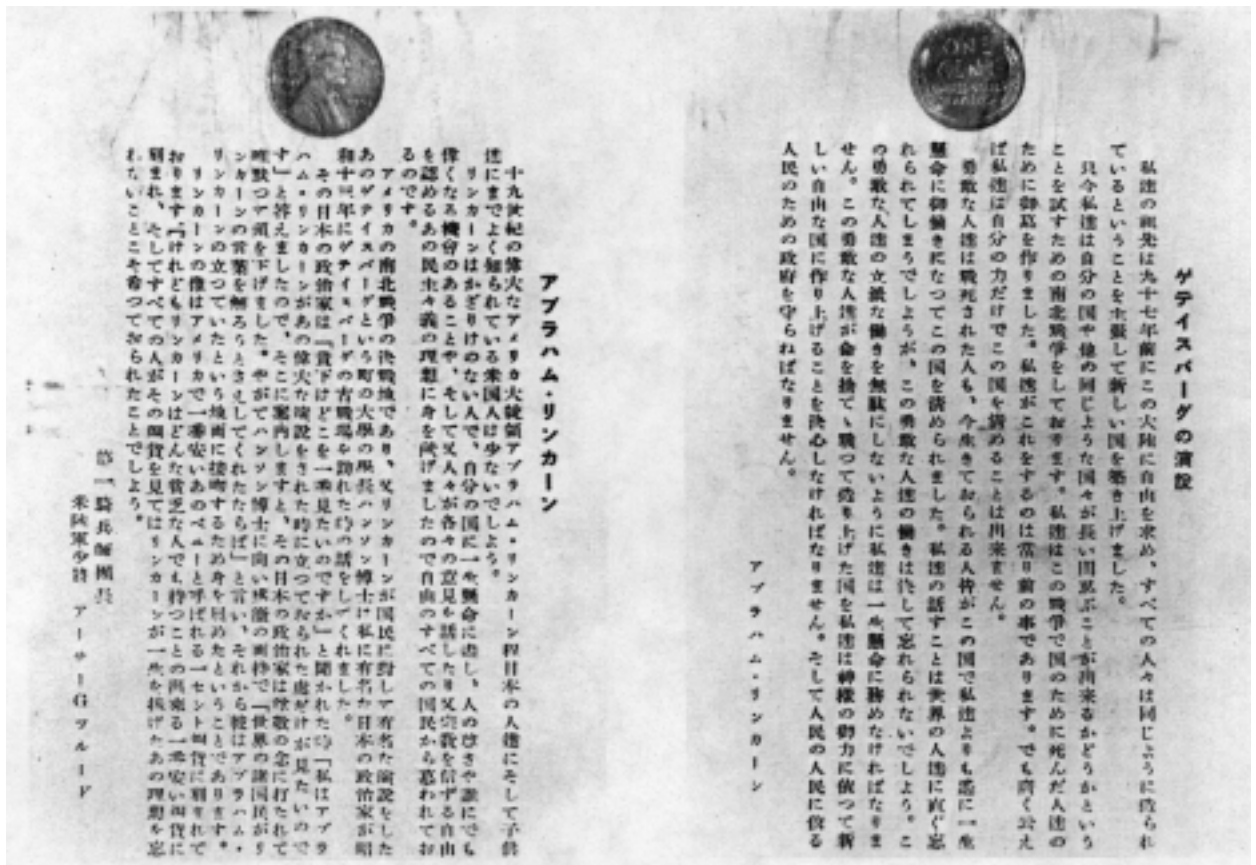 ONE
CENT
ゲテイスバーグの演説
私達の祖先は九十七年前にこの大陸に自由を求め、すべての人々は同じように造られ
ているということを主張して新しい国を築き上げました。
只今私達は自分の国や他の同じような国々が長い間忍ぶことが出来るかどうかという
ことを試すための南北戦争をしております。私達はこの戦争で国のために死んだ人達の
ために御墓を作りました。私達がこれをするのは当り前の事であります。でも広く云え
ば私達は自分の力だけでこの国を清めることは出来ません。
勇敢な人達は戦死された人も、今生きておられる人皆がこの国で私達よりも遥に一生
懸命に御働きになつてこの国を清められました。私達の話すことは世界の人達に直ぐ忘
れられてしまうでしようが、この勇敢な人達の働きは決して忘れられないでしよう。こ
の勇敢な人達の立派な働きを無駄にしないように私達は一生懸命に務めなければなりま
せん。この勇敢な人達が命を捨てゝ戦つて造り上げた国を私達は神様の御力に依つて新
しい自由な国に作り上げることを決心しなければなりません。そして人民の人民に依る
人民のための政府を守らねばなりません。
アブラハム・リンカーン
アブラハム・リンカーン
十九世紀の偉大なアメリカ大統領アブラハム・リンカーン程日本の人達にそして子供
達にまでよく知られている米国人は少ないでしよう。
リンカーンはかざりけのない人で、自分の国に一生懸命に尽し、人の尊さや誰にでも
偉くなる機会のあることや、そして又人々が各々の意見を話したり又宗教を信ずる自由
を認めるあの民主々義の理想に身を捧げましたので自由のすべての国民から慕われてお
るのです。
アメリカの南北戦争の決戦地であり、又リンカーンが国民に対して有名な演説をした
あのゲテイスバーグという町の大学の学長ハンソン博士は私に有名な日本の政治家が昭
和十三年にゲテイスバーグの古戦場を訪れた時の話をしてくれました。
その日本の政治家は「貴下はどこを一番見たいのですか」と聞かれた時「私はアブラ
ハム・リンカーンがあの偉大な演説をされた時に立つておられた処だけが見たいので
す」と答えましたので、そこに案内しますと、その日本の政治家は尊敬の念に打たれて
暫黙つて頭を下げました。やがてハンソン博士に向い感激の面持で「世界の諸国民がリ
ンカーンの言葉を解ろうとさえしてくれたならば」と言い、それから彼はアブラハム・
リンカーンの立つていたという地面に接吻するため身を屈めたということであります。
リンカーンの像はアメリカで一番安いあのペニーと呼ばれる一セント銅貨に刻まれて
おります。けれどもリンカーンはどんな貧乏な人でも持つことの出来る一番安い銅貨に
刻まれ、そしてすべての人がその銅貨を見てはリンカーンが一生を捧げたあの理想を忘
れないことこそ希つておられたことでしよう。
第一騎兵師団長
米陸軍少将 アーサーGツルードー